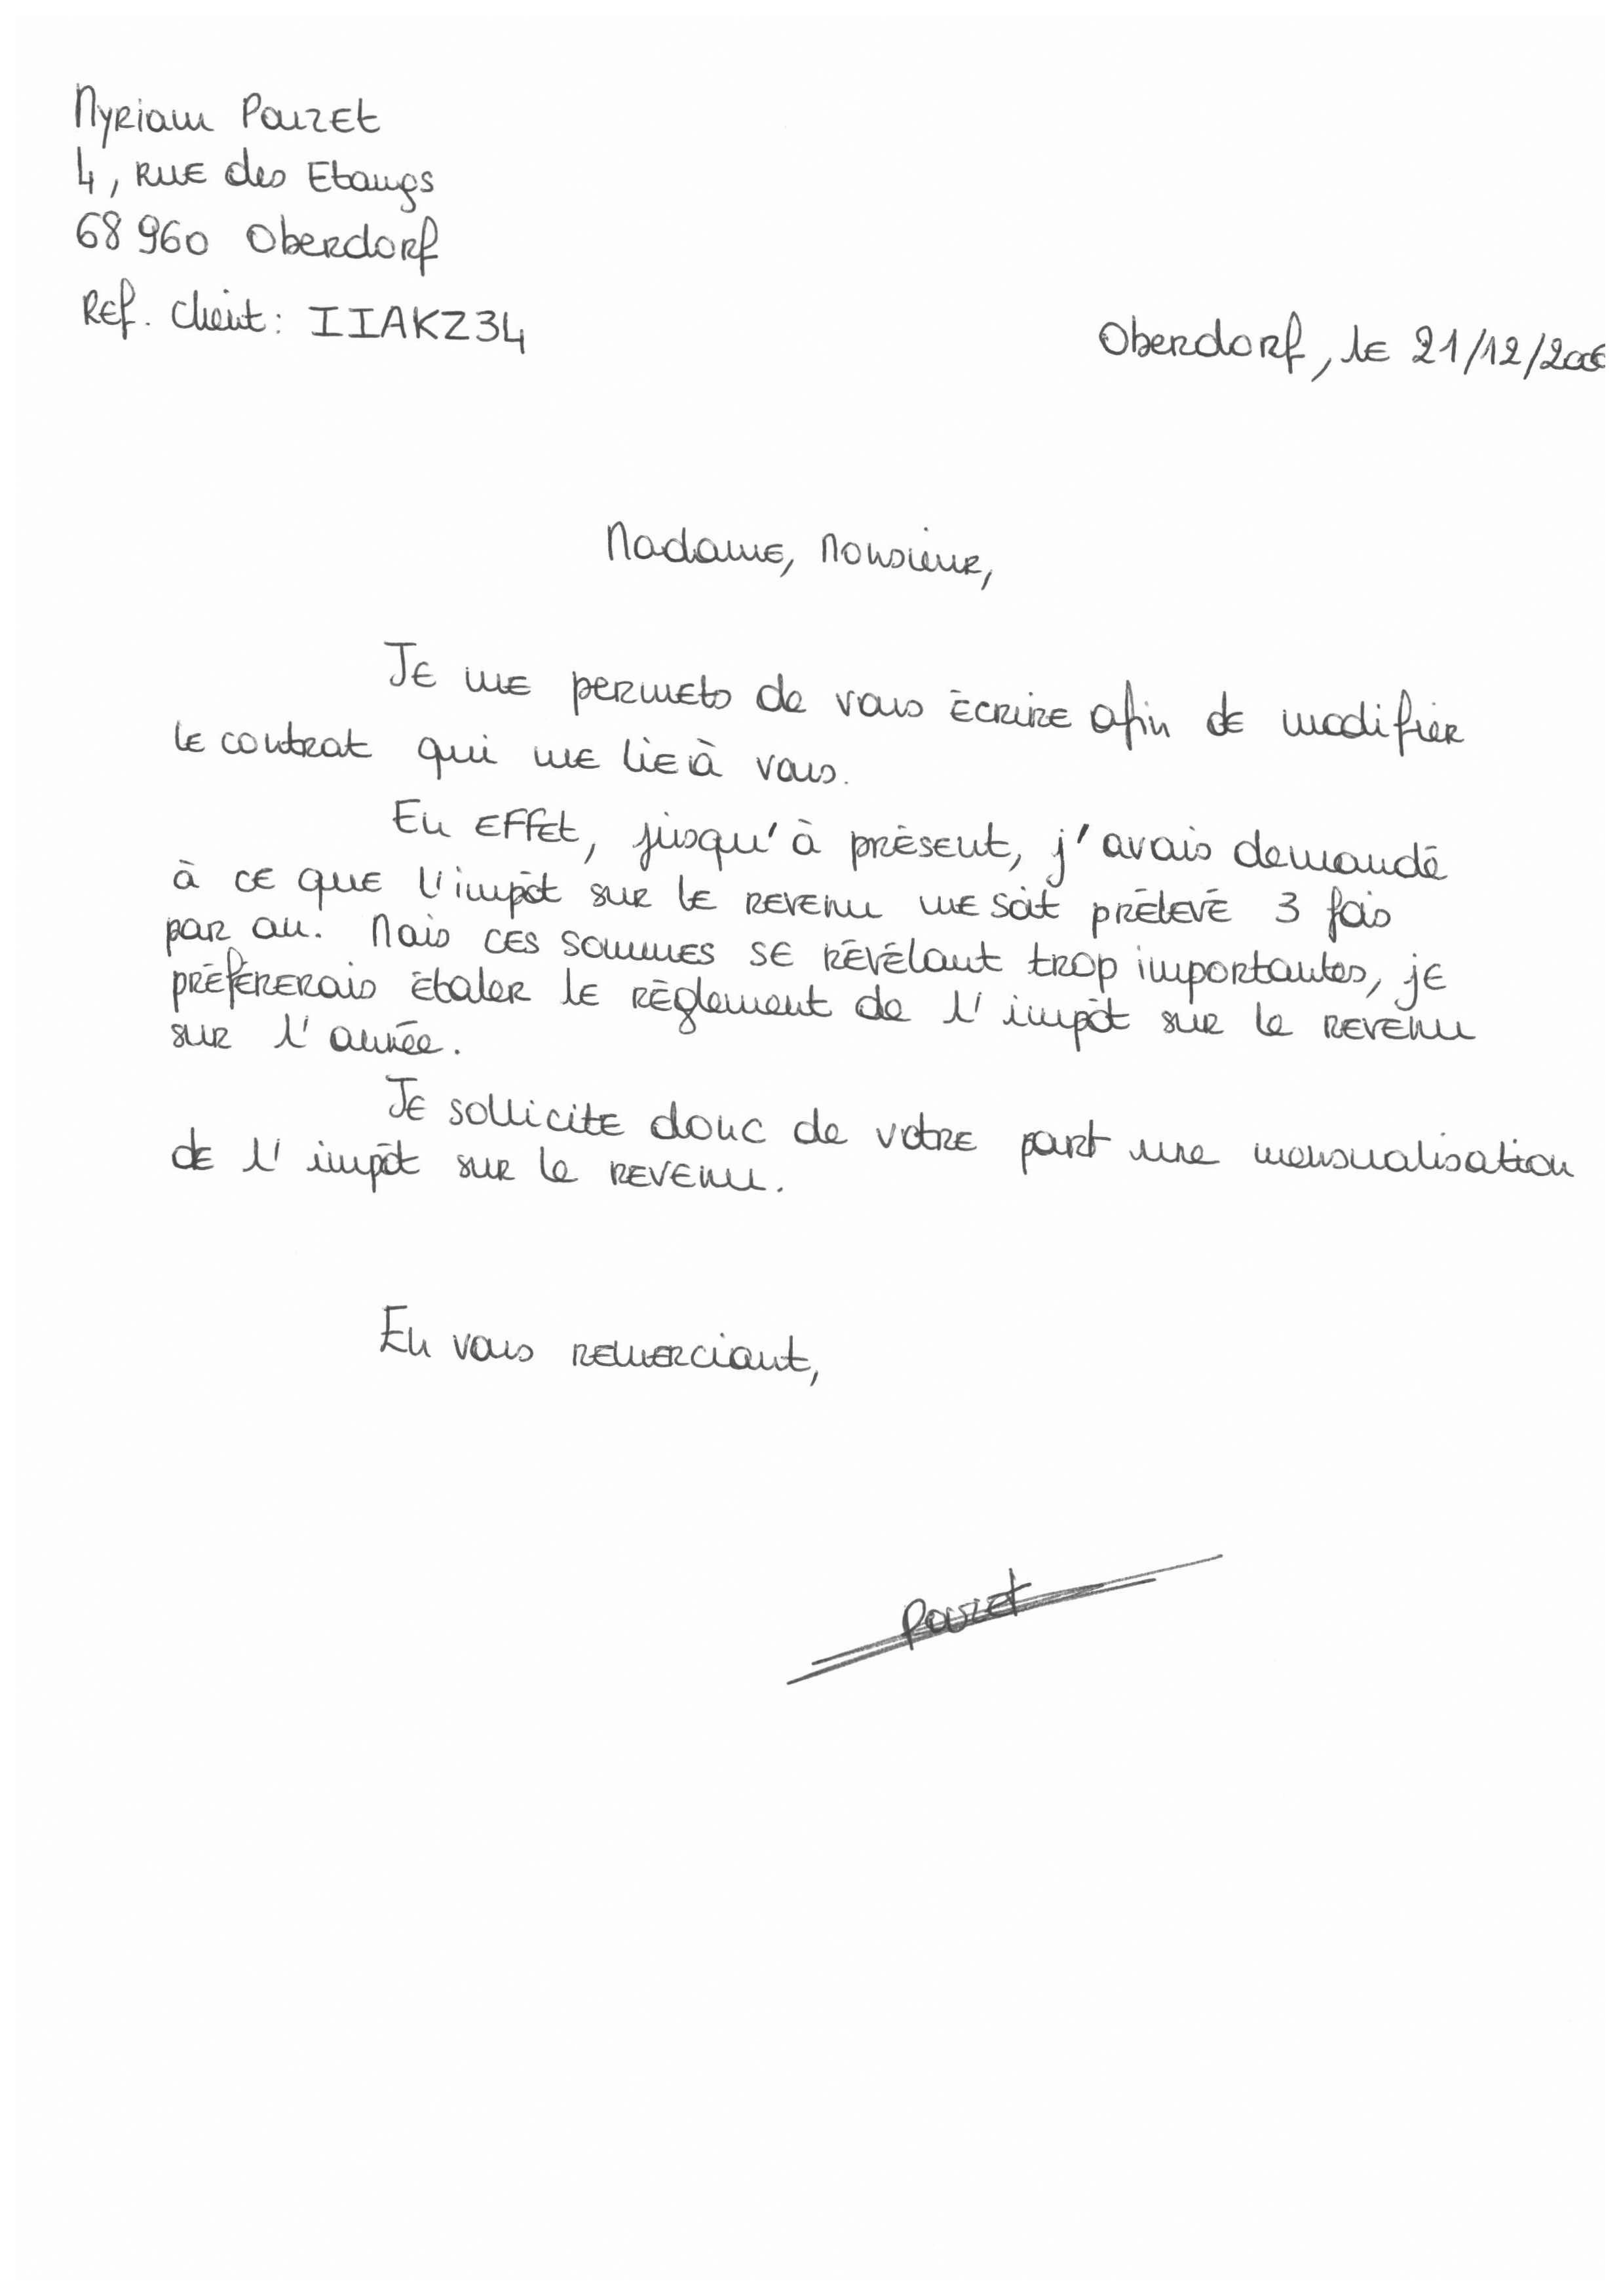 Myriam Pouzet
4, rue des Etangs
68 960 Oberdorf
Ref. Client : IIAKZ34
Oberdorf, le 21/12/2006
Madame, Monsieur,
Je me permets de vous écrire afin de modifier
le contrat qui me lie à vous.
En effet, jusqu'à présent, j'avais demandé
à ce que l'impôt sur le revenu me soit prélevé 3 fois
par an. Mais ces sommes se révélant trop importantes, je
préfèrerais étaler le règlement de l'impôt sur le revenu
sur l'année.
Je sollicite donc de votre part une mensualisation
de l'impôt sur le revenu.
En vous remerciant,
Pouzet